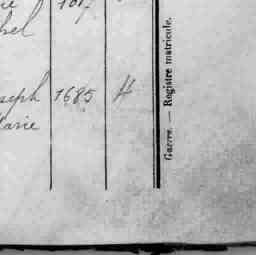 hel
seph 1685 H
Marie
Guerre. — Registre matricule.